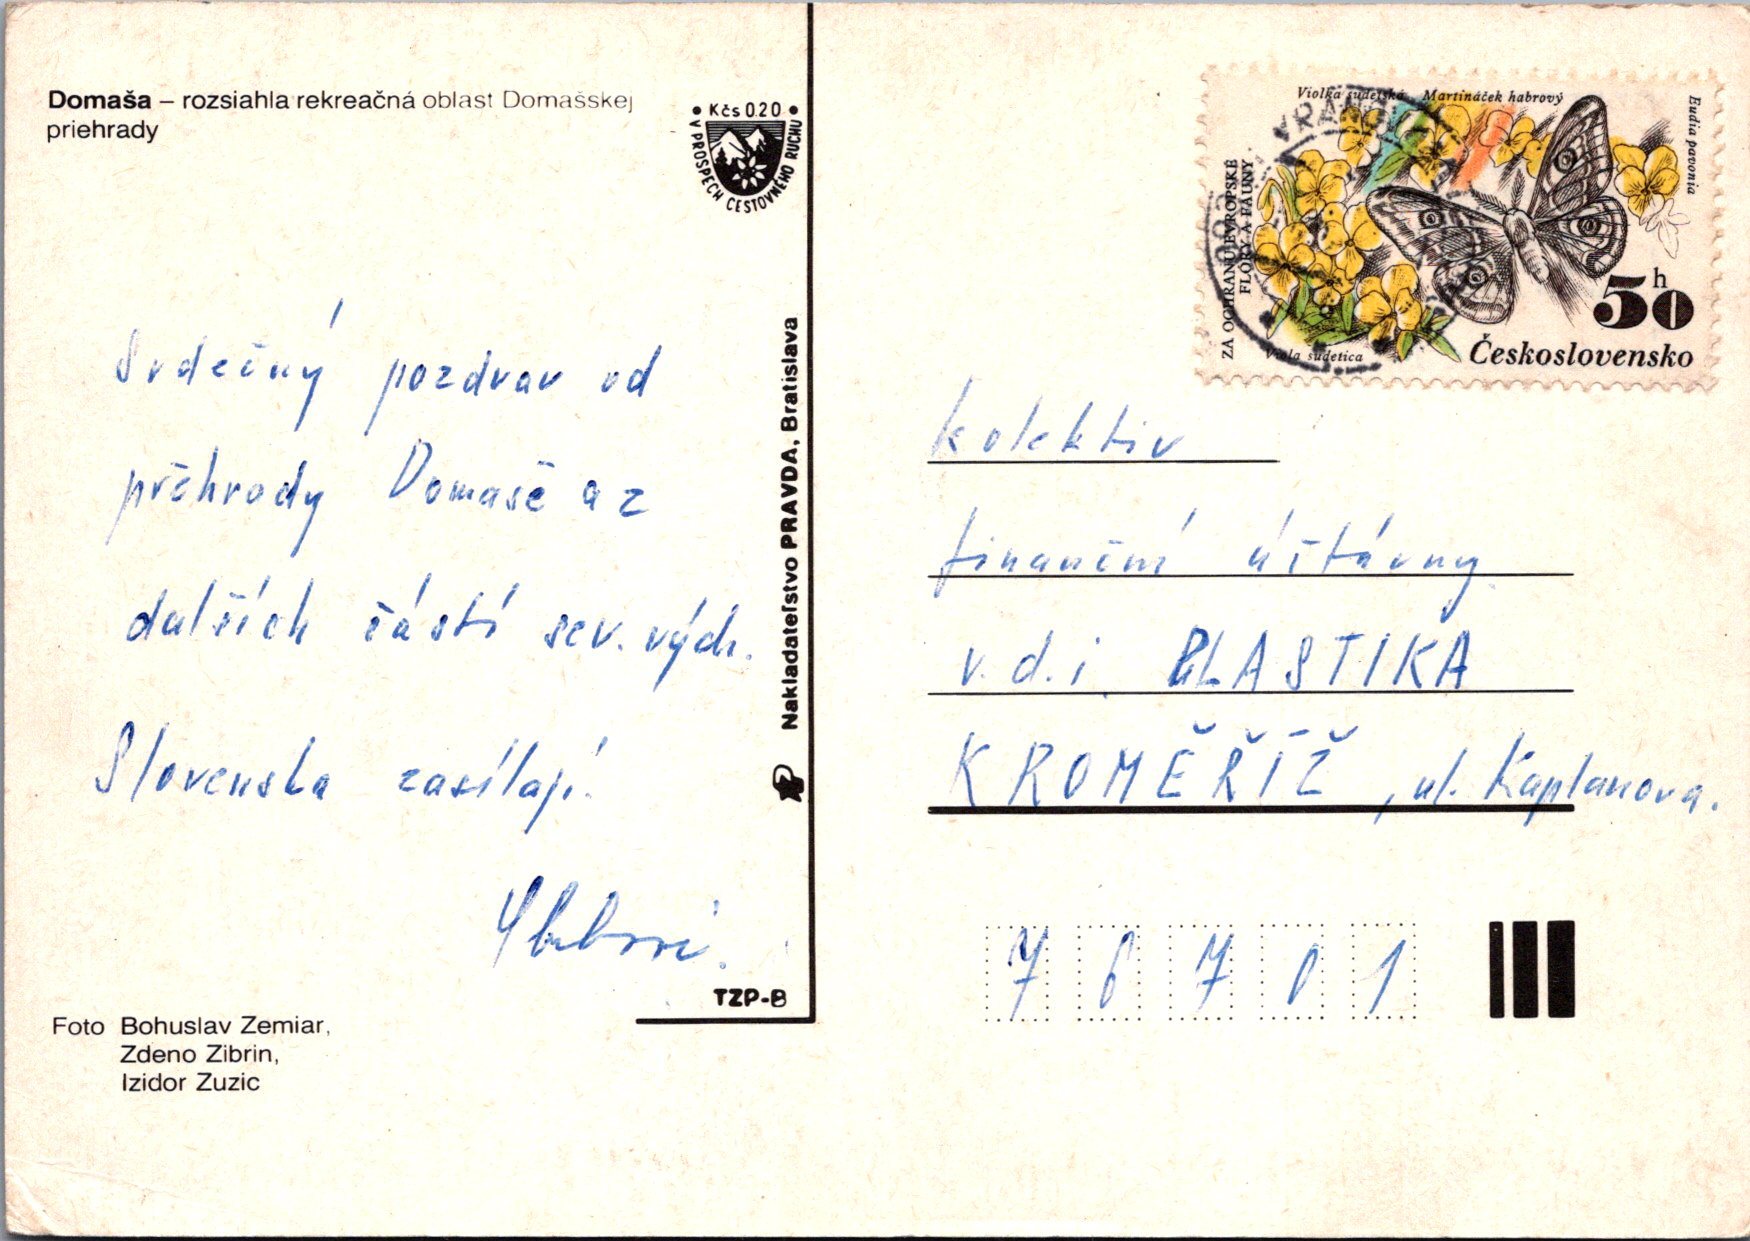 Domaša – rozsiahla rekreačná oblast Domašskej
priehrady
• Kčs 0.20 •
V PROSPECH CESTOVNÉHO RUCHU
Srdečný pozdrav od
přehrady Domaše a z
dalších částí sev. vých.
Slovenska zasílají
TZP-B
Foto Bohuslav Zemiar,
Zdeno Zibrin,
Izidor Zuzic
Nakladateľstvo PRAVDA, Bratislava
Violka sudetská Martináček habrový
Eudia pavonia
ZA OCHRANU EVROPSKÉ
FLÓRY A FAUNY
Viola sudetica
50 h
Československo
kolektiv
finanční účtárny
v.d.i. PLASTIKA
KROMĚŘÍŽ, ul. Kaplanova.
76701